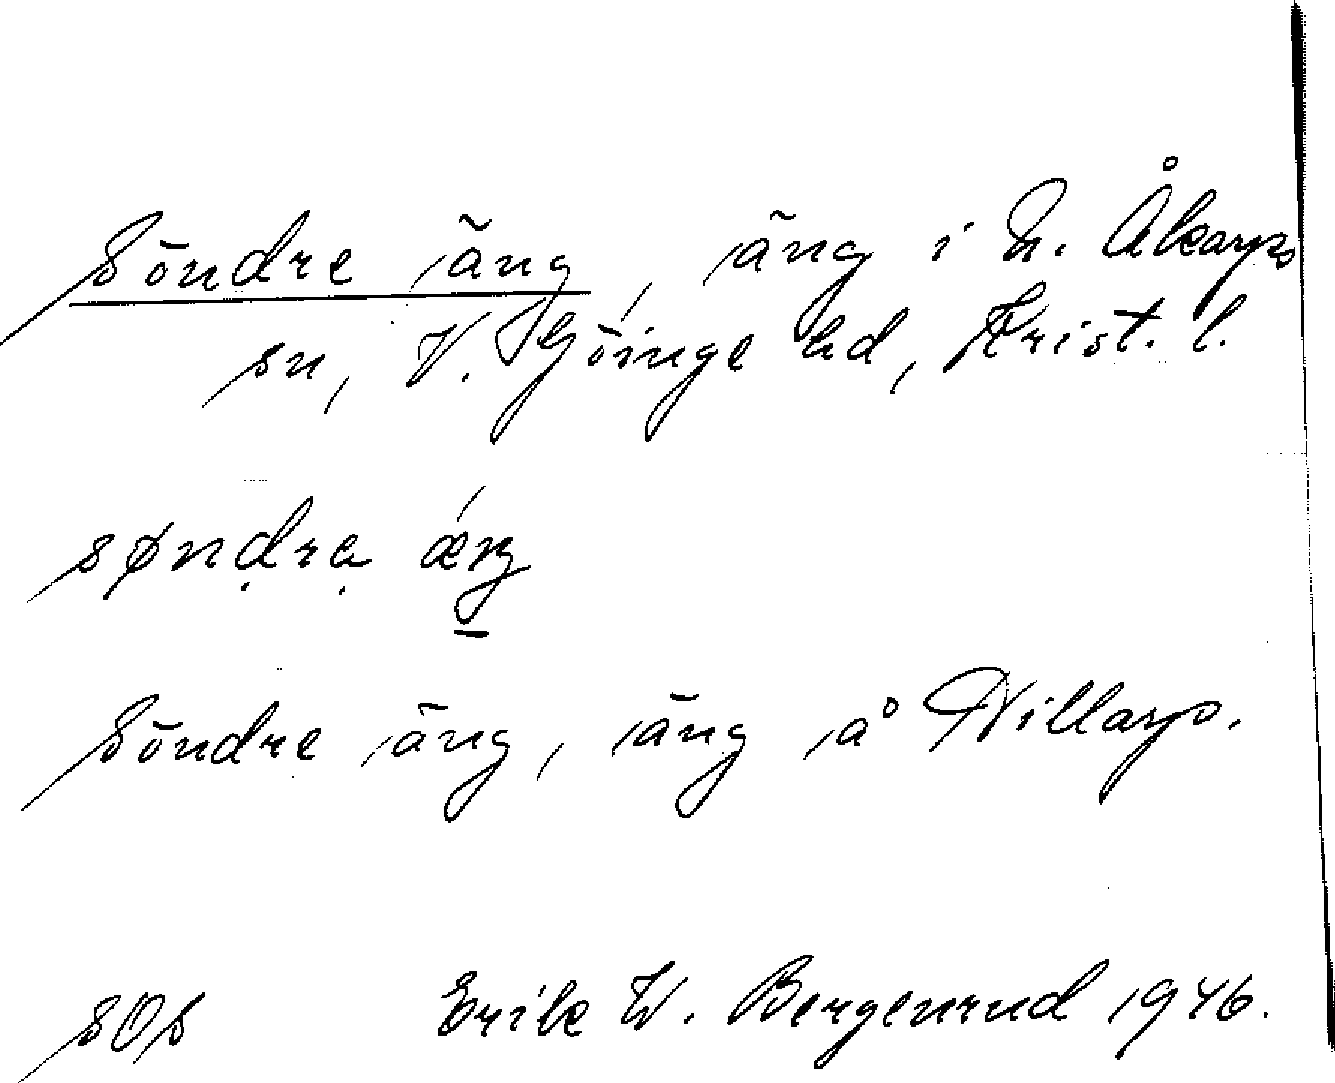 Söndre äng, äng i N. Åkarps
sn, V. Göinge hd, Krist. l.
söndra äŋ
Söndre äng, äng å Nillarp.
SOs Erik W. Bergenrud 1946.